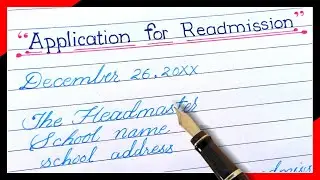 "Application for Readmission"
December 26, 20XX
The Headmaster
School name
school address